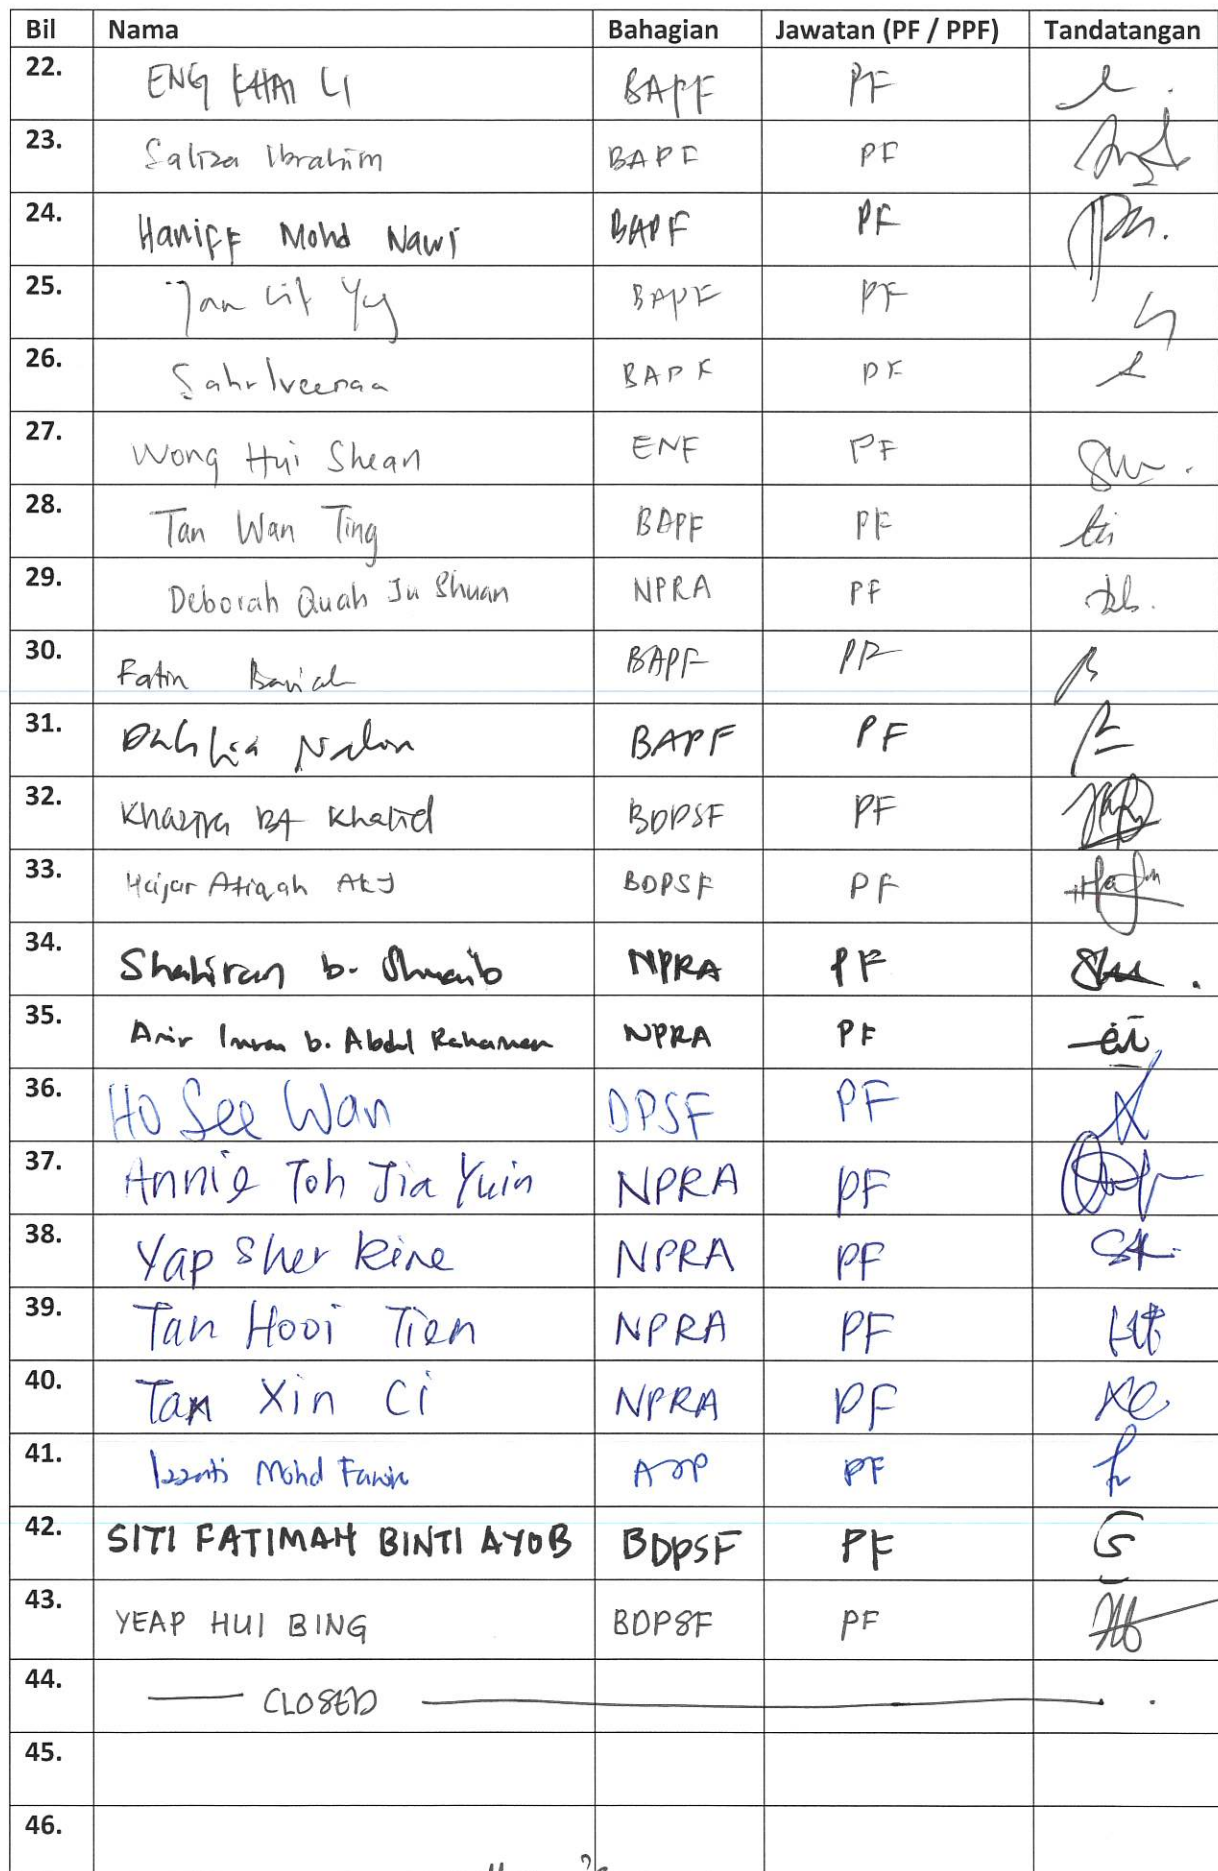 Bil Nama Bahagian Jawatan (PF / PPF) Tandatangan
22. ENG KHAI LI BAPF PF
23. Saliza Ibrahim BAPF PF
24. Haniff Mohd Nawi BAPF PF
25. Tan BAPF PF
26. BAPF PF
27. Wong Hui Shean ENF PF
28. Tan Wan Ting BAPF PF
29. Deborah Quah Ju Shuan NPRA PF
30. Fatin BAPF PF
31. Dahlia BAPF PF
32. Khalid BDPSF PF
33. Hajar Atiqah BDPSF PF
34. Shahiran b. Shuaib NPRA PF
35. b. Abdul Rahaman NPRA PF
36. Ho See Wan DPSF PF
37. Annie Toh Jia Yuin NPRA PF
38. Yap Sher Rine NPRA PF
39. Tan Hooi Tien NPRA PF
40. Tan Xin Ci NPRA PF
41. Izzati Mohd PF
42. SITI FATIMAH BINTI AYOB BDPSF PF
43. YEAP HUI BING BDPSF PF
44. CLOSED
45.
46.